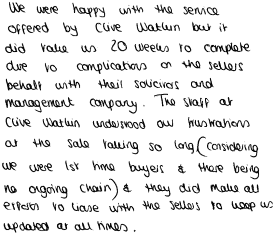 We were happy with the service
offered by Clive Watkin but it
did take us 20 weeks to complete
due to complications on the sellers
behalf with their solicitors and
management company. The staff at
Clive Watkin understood our frustrations
at the sale taking so long (considering
we were 1st time buyers & there being
no ongoing chain) & they did make all
efforts to liase with the sellers to keep us
updated at all times.